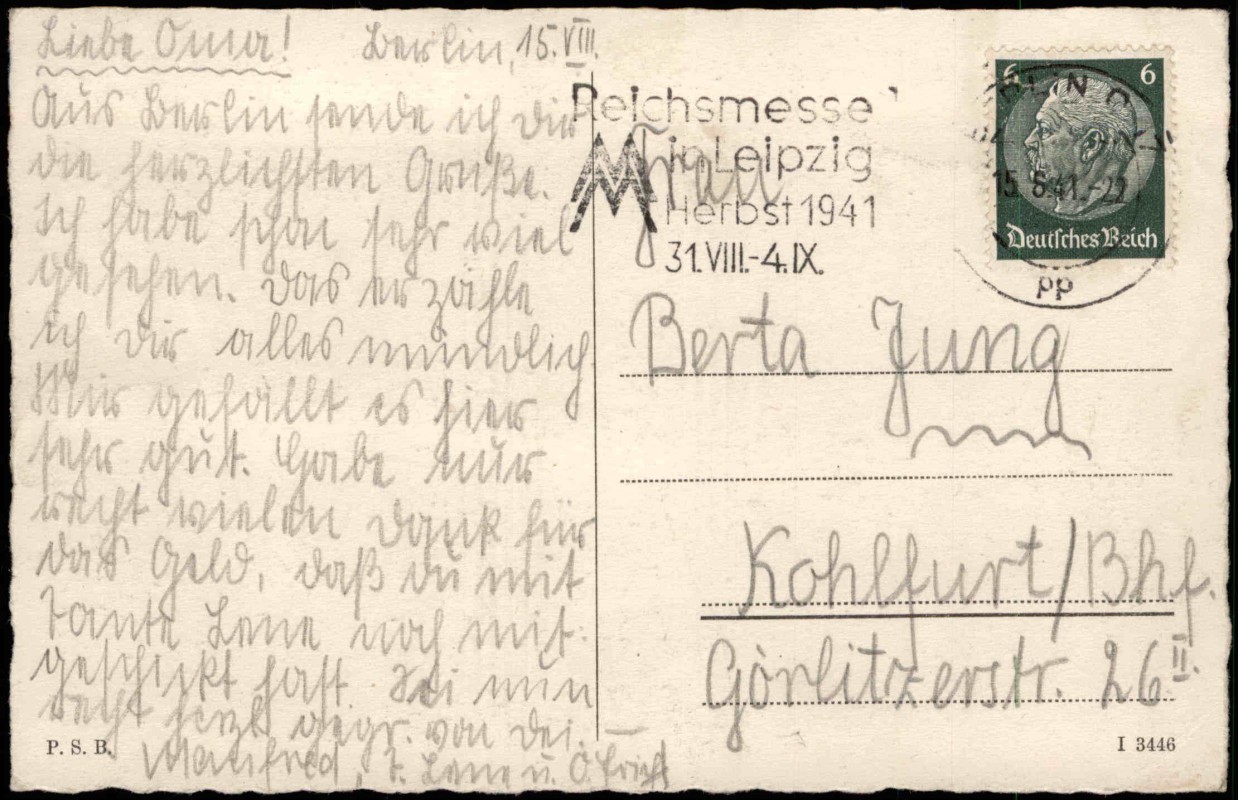 Liebe Oma! Berlin, 15. VIII.
Aus Berlin sende ich dir
die herzlichsten Grüße.
Ich habe schon sehr viel
gesehen. Das erzähle
ich dir alles mündlich.
Mir gefällt es hier
sehr gut. Habe nur
recht vielen Dank für
das Geld, daß du mit
Tante Lene noch mit-
geschickt hast. Sei nun
recht herzl. gegr. von dei.
Manfred, T. Lene u. O. Erich
P. S. B.
Reichsmesse
in Leipzig
Herbst 1941
31.VIII.-4.IX.
BERLIN C
15.8.41.-22
pp
6 6
Deutsches Reich
Frau
Berta Jung
Kohlfurt/Bhf.
Görlitzerstr. 26 II.
I 3446